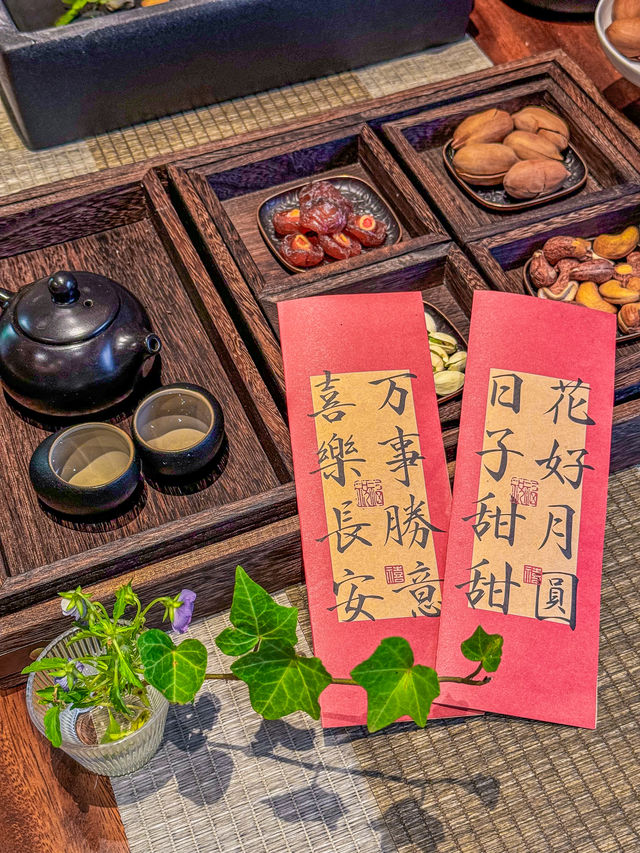 万事勝意
喜樂長安
花好月圓
日子甜甜